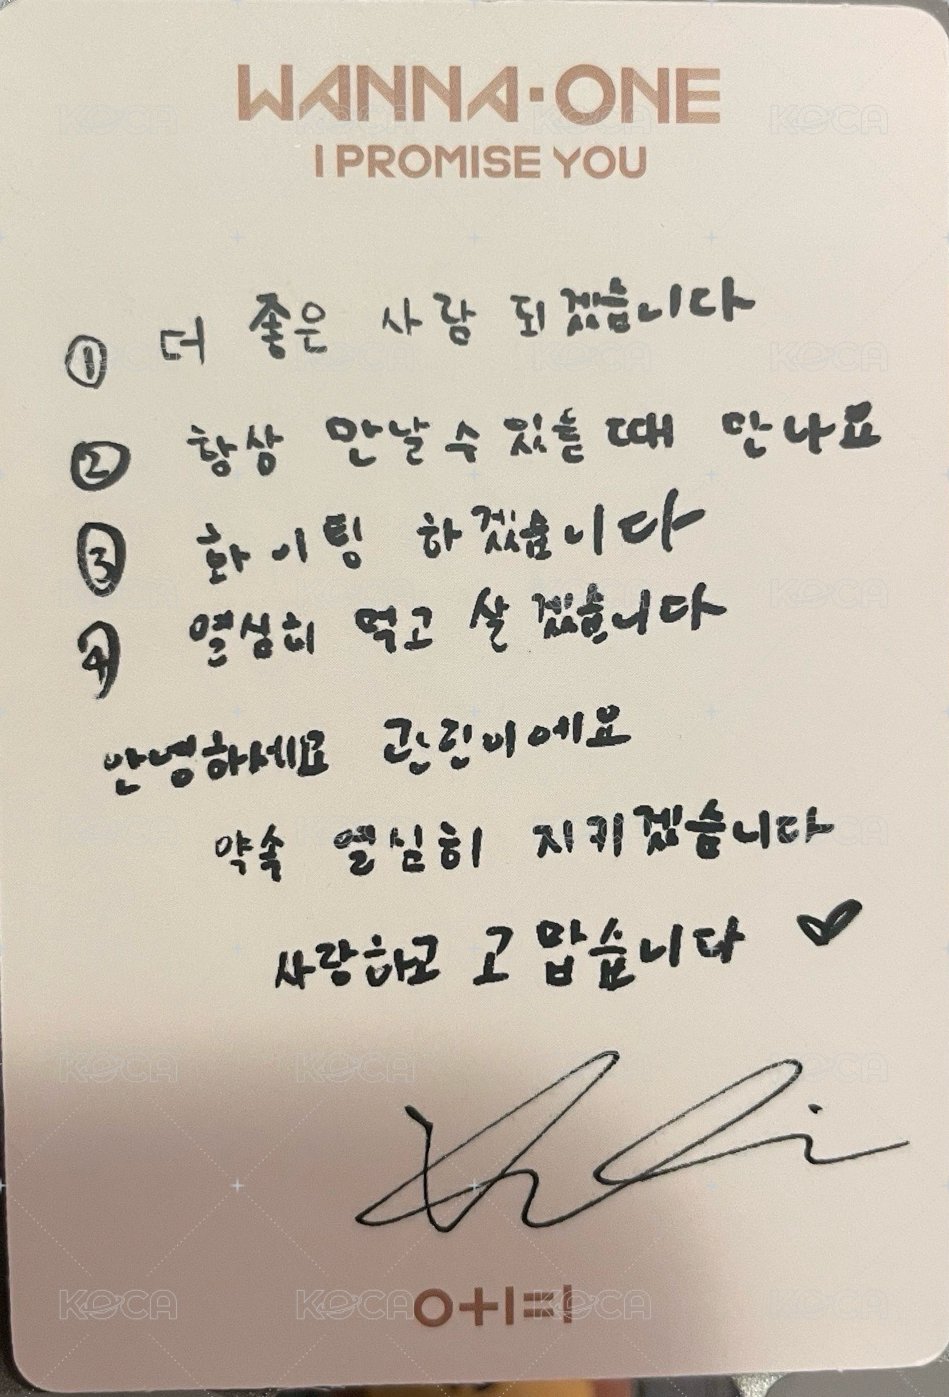 WANNA·ONE
I PROMISE YOU
① 더 좋은 사람 되겠습니다
② 항상 만날 수 있을 때 만나요
③ 화이팅 하겠습니다
④ 열심히 먹고 살겠습니다
안녕하세요 관린이에요
약속 열심히 지키겠습니다
사랑하고 고맙습니다 ♥
KOCA